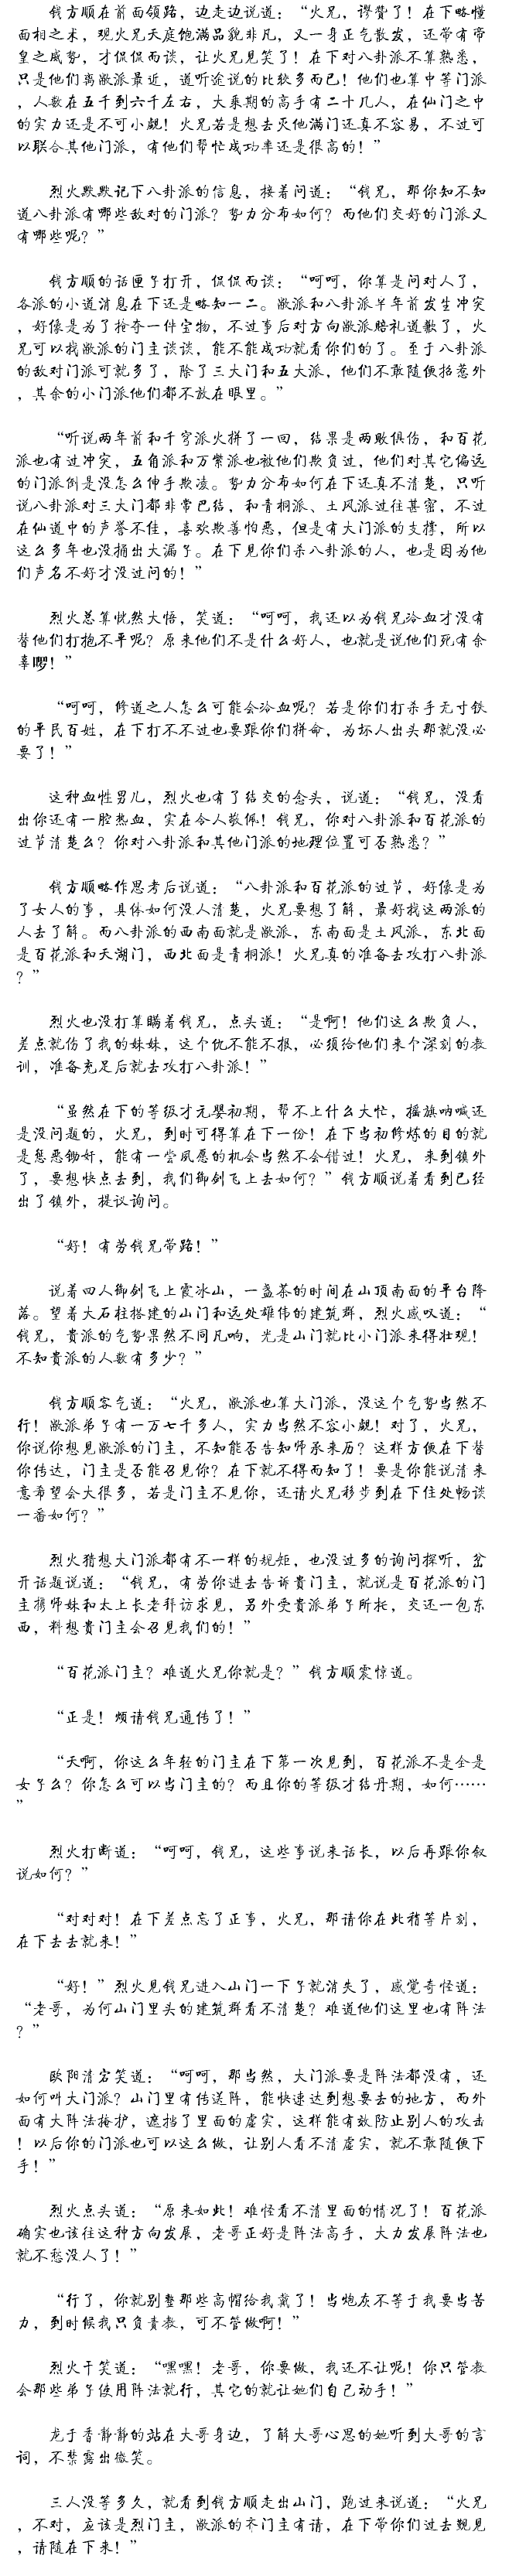 钱方顺在前面领路，边走边说道：“火兄，谬赞了！在下略懂
面相之术，观火兄天庭饱满品貌非凡，又一身正气散发，还带有帝
皇之威势，才侃侃而谈，让火兄见笑了！在下对八卦派不算熟悉，
只是他们离敝派最近，道听途说的比较多而已！他们也算中等门派
，人数在五千到六千左右，大乘期的高手有二十几人，在仙门之中
的实力还是不可小觑！火兄若是想去灭他满门还真不容易，不过可
以联合其他门派，有他们帮忙成功率还是很高的！”
烈火默默记下八卦派的信息，接着问道：“钱兄，那你知不知
道八卦派有哪些敌对的门派？势力分布如何？而他们交好的门派又
有哪些呢？”
钱方顺的话匣子打开，侃侃而谈：“呵呵，你算是问对人了，
各派的小道消息在下还是略知一二。敝派和八卦派早年前发生冲突
，好像是为了抢夺一件宝物，不过事后对方向敝派赔礼道歉了，火
兄可以找敝派的门主谈谈，能不能成功就看你们的了。至于八卦派
的敌对门派可就多了，除了三大门和五大派，他们不敢随便招惹外
，其余的小门派他们都不放在眼里。”
“听说两年前和千穹派火拼了一回，结果是两败俱伤，和百花
派也有过冲突，五角派和万紫派也被他们欺负过，他们对其它偏远
的门派倒是没怎么伸手欺凌。势力分布如何在下还真不清楚，只听
说八卦派对三大门都非常巴结，和青桐派、土风派过往甚密，不过
在仙道中的声誉不佳，喜欢欺善怕恶，但是有大门派的支撑，所以
这么多年也没捅出大漏子。在下见你们杀八卦派的人，也是因为他
们声名不好才没过问的！”
烈火总算恍然大悟，笑道：“呵呵，我还以为钱兄冷血才没有
替他们打抱不平呢？原来他们不是什么好人，也就是说他们死有余
辜啰！”
“呵呵，修道之人怎么可能会冷血呢？若是你们打杀手无寸铁
的平民百姓，在下打不不过也要跟你们拼命，为坏人出头那就没必
要了！”
这种血性男儿，烈火也有了结交的念头，说道：“钱兄，没看
出你还有一腔热血，实在令人敬佩！钱兄，你对八卦派和百花派的
过节清楚么？你对八卦派和其他门派的地理位置可否熟悉？”
钱方顺略作思考后说道：“八卦派和百花派的过节，好像是为
了女人的事，具体如何没人清楚，火兄要想了解，最好找这两派的
人去了解。而八卦派的西南面就是敝派，东南面是土风派，东北面
是百花派和天湖门，西北面是青桐派！火兄真的准备去攻打八卦派
？”
烈火也没打算瞒着钱兄，点头道：“是啊！他们这么欺负人，
差点就伤了我的妹妹，这个仇不能不报，必须给他们来个深刻的教
训，准备充足后就去攻打八卦派！”
“虽然在下的等级才元婴初期，帮不上什么大忙，摇旗呐喊还
是没问题的，火兄，到时可得算在下一份！在下当初修炼的目的就
是惩恶锄奸，能有一尝夙愿的机会当然不会错过！火兄，来到镇外
了，要想快点去到，我们御剑飞上去如何？”钱方顺说着看到已经
出了镇外，提议询问。
“好！有劳钱兄带路！”
说着四人御剑飞上霞冰山，一盏茶的时间在山顶南面的平台降
落。望着大石柱搭建的山门和远处雄伟的建筑群，烈火感叹道：“
钱兄，贵派的气势果然不同凡响，光是山门就比小门派来得壮观！
不知贵派的人数有多少？”
钱方顺客气道：“火兄，敝派也算大门派，没这个气势当然不
行！敝派弟子有一万七千多人，实力当然不容小觑！对了，火兄，
你说你想见敝派的门主，不知能否告知师承来历？这样方便在下替
你传达，门主是否能召见你？在下就不得而知了！要是你能说清来
意希望会大很多，若是门主不见你，还请火兄移步到在下住处畅谈
一番如何？”
烈火猜想大门派都有不一样的规矩，也没过多的询问探听，岔
开话题说道：“钱兄，有劳你进去告诉贵门主，就说是百花派的门
主携师妹和太上长老拜访求见，另外受贵派弟子所托，交还一包东
西，料想贵门主会召见我们的！”
“百花派门主？难道火兄你就是？”钱方顺震惊道。
“正是！烦请钱兄通传了！”
“天啊，你这么年轻的门主在下第一次见到，百花派不是全是
女子么？你怎么可以当门主的？而且你的等级才结丹期，如何……
”
烈火打断道：“呵呵，钱兄，这些事说来话长，以后再跟你叙
说如何？”
“对对对！在下差点忘了正事，火兄，那请你在此稍等片刻，
在下去去就来！”
“好！”烈火见钱兄进入山门一下子就消失了，感觉奇怪道：
“老哥，为何山门里头的建筑群看不清楚？难道他们这里也有阵法
？”
欧阳清宕笑道：“呵呵，那当然，大门派要是阵法都没有，还
如何叫大门派？山门里有传送阵，能快速达到想要去的地方，而外
面有大阵法掩护，遮挡了里面的虚实，这样能有效防止别人的攻击
！以后你的门派也可以这么做，让别人看不清虚实，就不敢随便下
手！”
烈火点头道：“原来如此！难怪看不清里面的情况了！百花派
确实也该往这种方向发展，老哥正好是阵法高手，大力发展阵法也
就不愁没人了！”
“行了，你就别整那些高帽给我戴了！当炮灰不等于我要当苦
力，到时候我只负责教，可不管做啊！”
烈火干笑道：“嘿嘿！老哥，你要做，我还不让呢！你只管教
会那些弟子使用阵法就行，其它的就让她们自己动手！”
龙于香静静的站在大哥身边，了解大哥心思的她听到大哥的言
词，不禁露出微笑。
三人没等多久，就看到钱方顺走出山门，跑过来说道：“火兄
，不对，应该是烈门主，敝派的齐门主有请，在下带你们过去觐见
，请随在下来！”